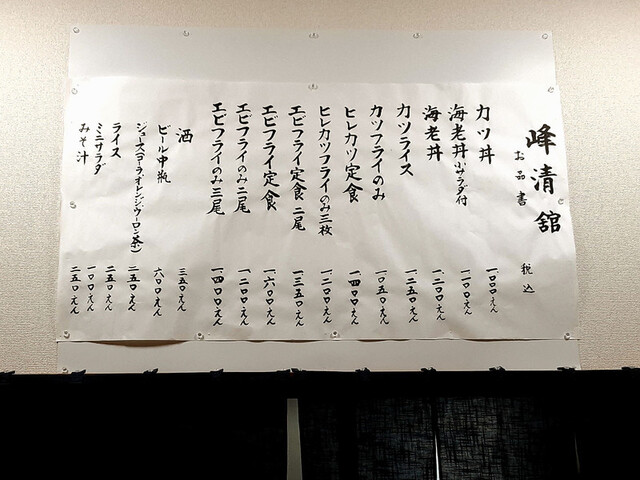 峰清舘
お品書
税込
カツ丼 一〇〇〇えん
海老丼 小サラダ付 一一〇〇えん
海老丼 一二〇〇えん
カツライス 一二五〇えん
カツフライのみ 一〇五〇えん
ヒレカツ定食 一四〇〇えん
ヒレカツフライのみ三枚 一二〇〇えん
エビフライ定食 二尾 一三五〇えん
エビフライ定食 一六〇〇えん
エビフライのみ二尾 一二〇〇えん
エビフライのみ三尾 一四〇〇えん
酒 三五〇えん
ビール中瓶 六〇〇えん
ジュース(コーラ・オレンジ・ウーロン茶) 二五〇えん
ライス 二五〇えん
ミニサラダ 一〇〇えん
みそ汁 二五〇えん